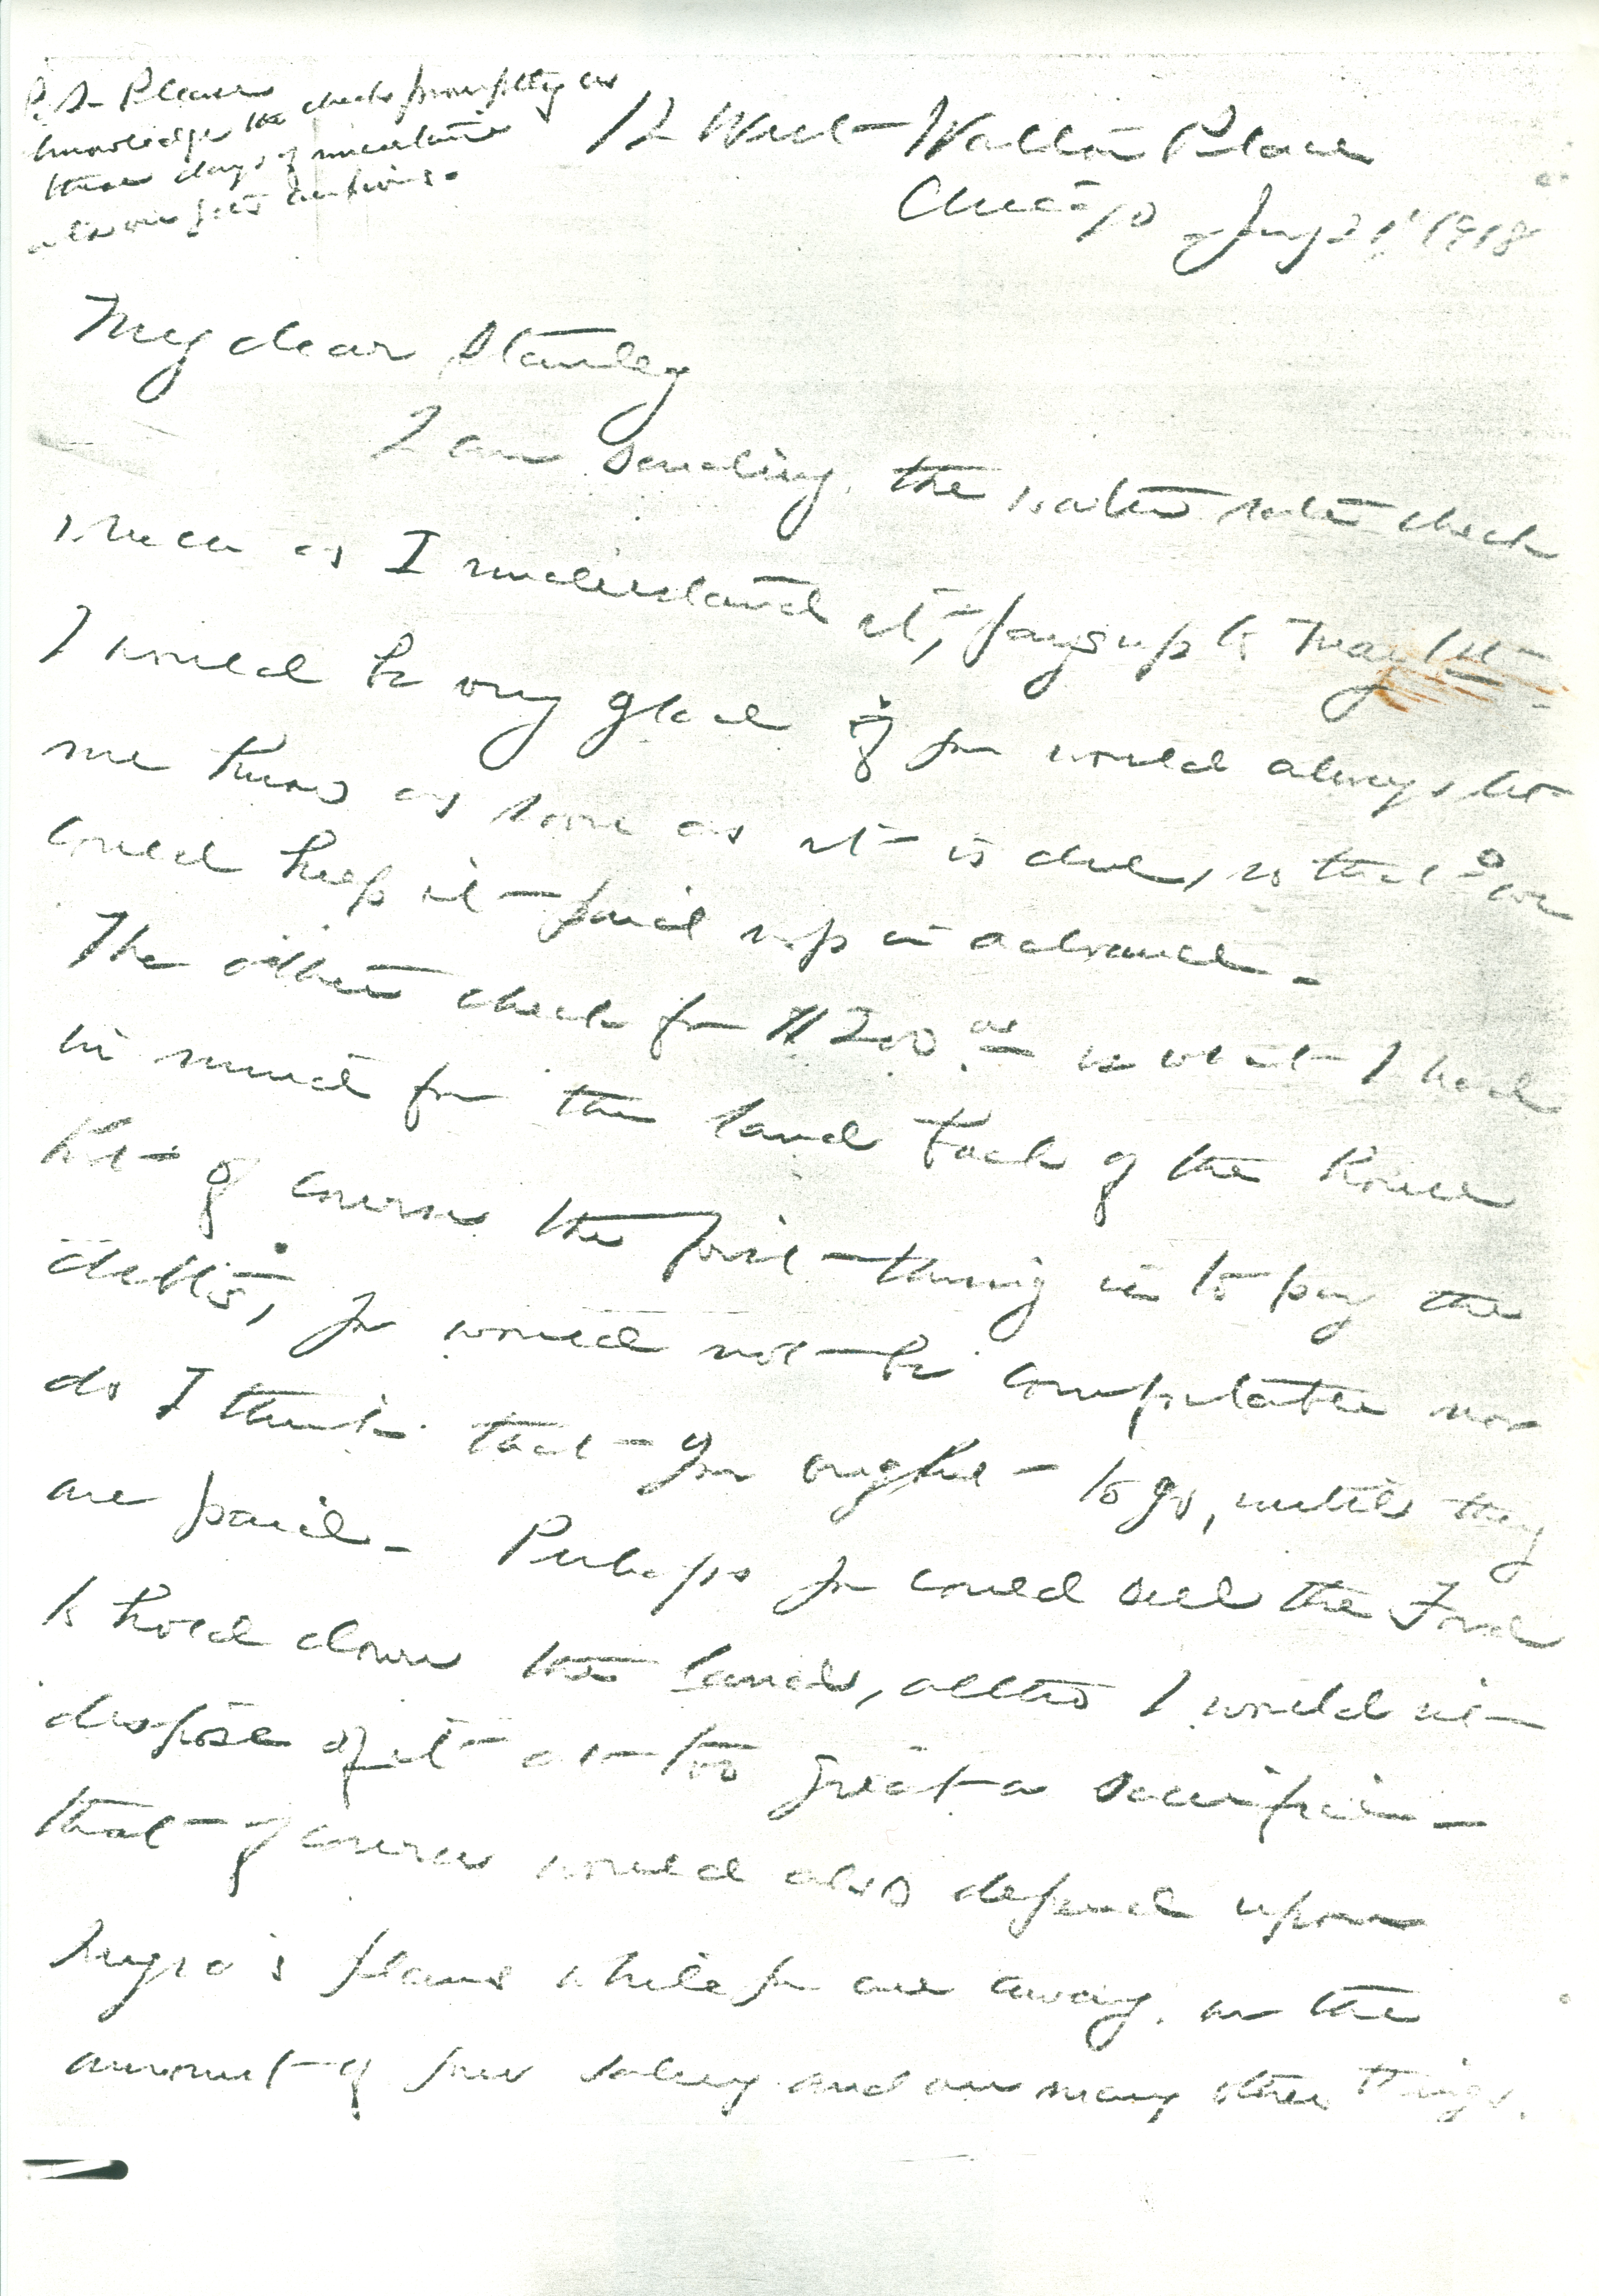 P.S. Please
acknowledge the checks promptly as
these days of uncertain
12 West Walton Place
Chicago Jany 21, 1918
My dear Stanley
I am sending the water rates check
which as I understand it, pays up to May 1st
I would be very glad if you would always let
me know as soon as it is due, so that we
could keep it paid up in advance.
The other check for $200.00 is what I had
in mind for the land back of the house
but of course the first thing is to pay the
debts, you would not be comfortable nor
do I think that you ought to go, until they
are paid. Perhaps you could sell the Ford
to hold down the land, altho I would not
dispose of it at too great a sacrifice
that of course would also depend upon
plans while you are away, on the
amount of your salary and on many other things.